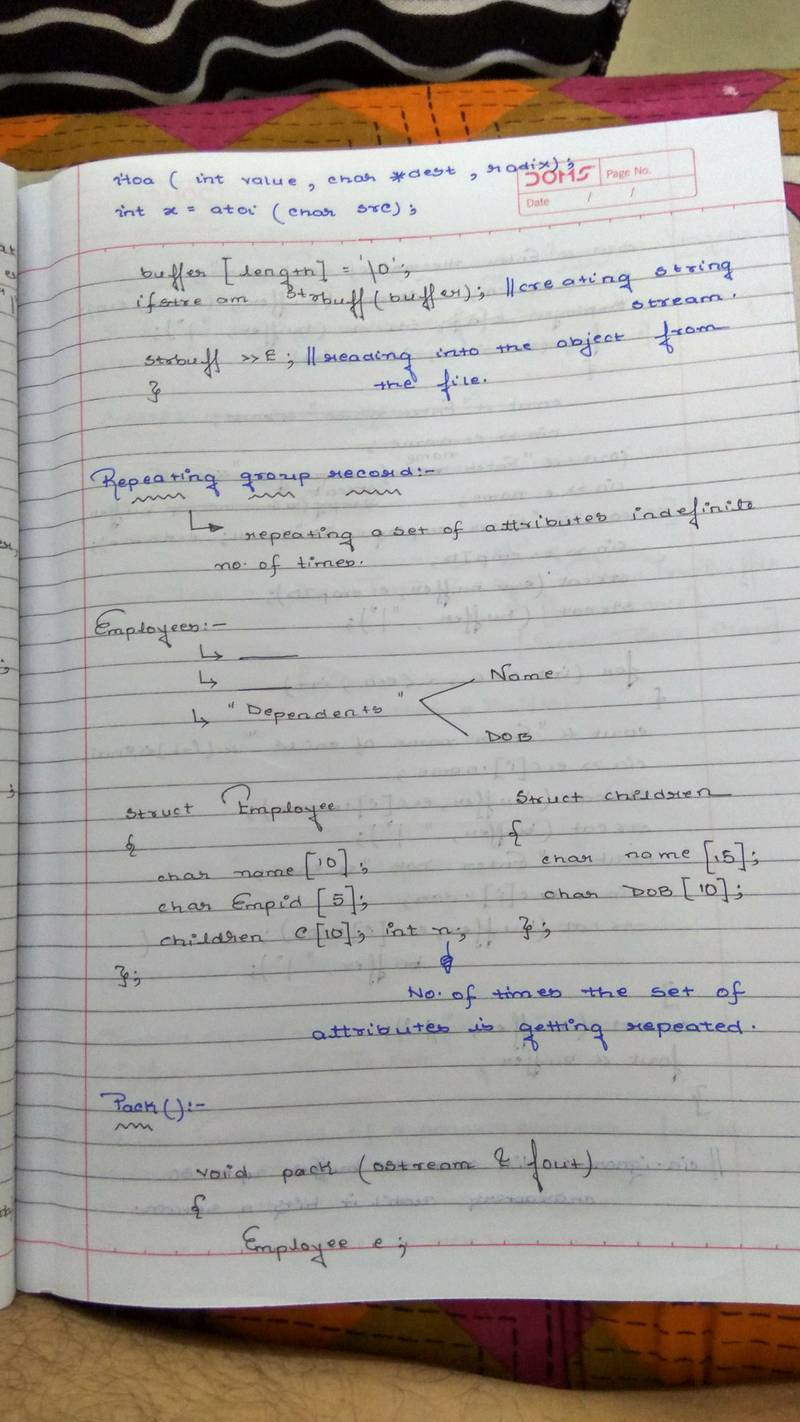 itoa ( int value , char *dest , radix);
int x = atoi (char src);
DOMS
Page No.
Date / /
buffer [length] = '\0';
ifstream strbuff (buffer); //creating string
stream.
strbuff >> E ; //reading into the object from
the file.
}
Repeating group record:-
repeating a set of attributes indefinite
no. of times.
Employees:-
"Dependents"
Name
DOB
struct Employee
{
char name [10];
char Empid [5];
children c[10]; int n;
};
struct children
{
char name [15];
char DOB [10];
};
No. of times the set of
attributes is getting repeated.
Pack():-
void pack (ostream & fout)
{
Employee e;